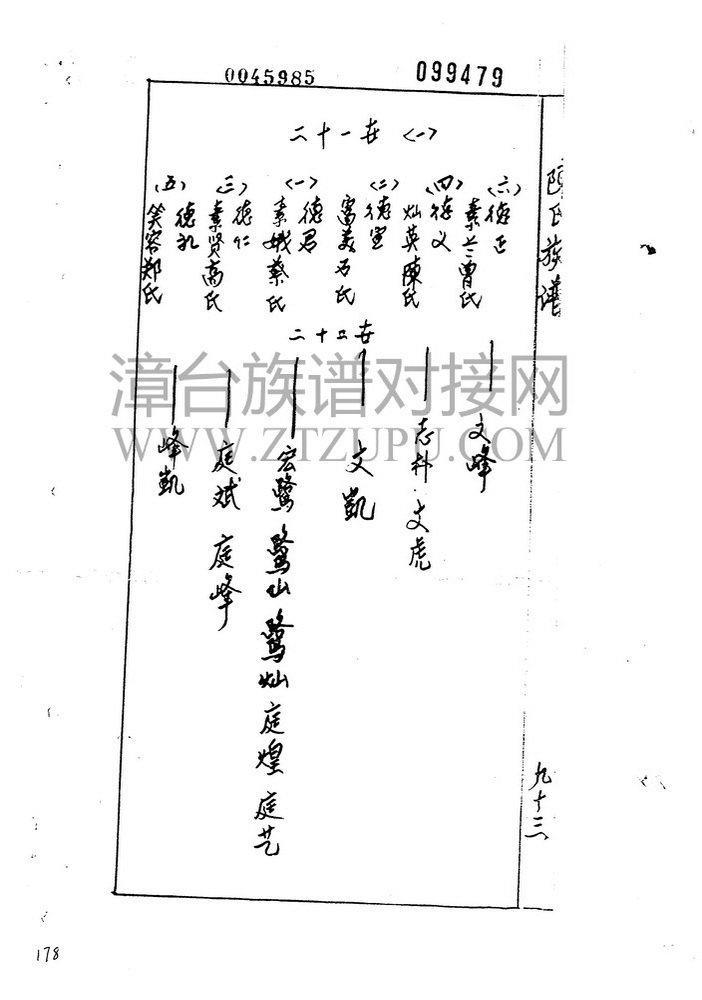 0045985
099479
陈氏族谱
二十一世 〈一〉
〈六〉德正
素兰曾氏
〈四〉德义
灿英陳氏
〈二〉德宣
富美石氏
〈一〉德君
素娥蔡氏
〈三〉德仁
素贤高氏
〈五〉德礼
笑容郑氏
二十二世
文峰
志科 文虎
文凱
宏鷺 鷺山 鷺灿 庭煌 庭艺
庭斌 庭峰
峰凱
九十三
178
漳台族谱对接网
WWW.ZTZUPU.COM